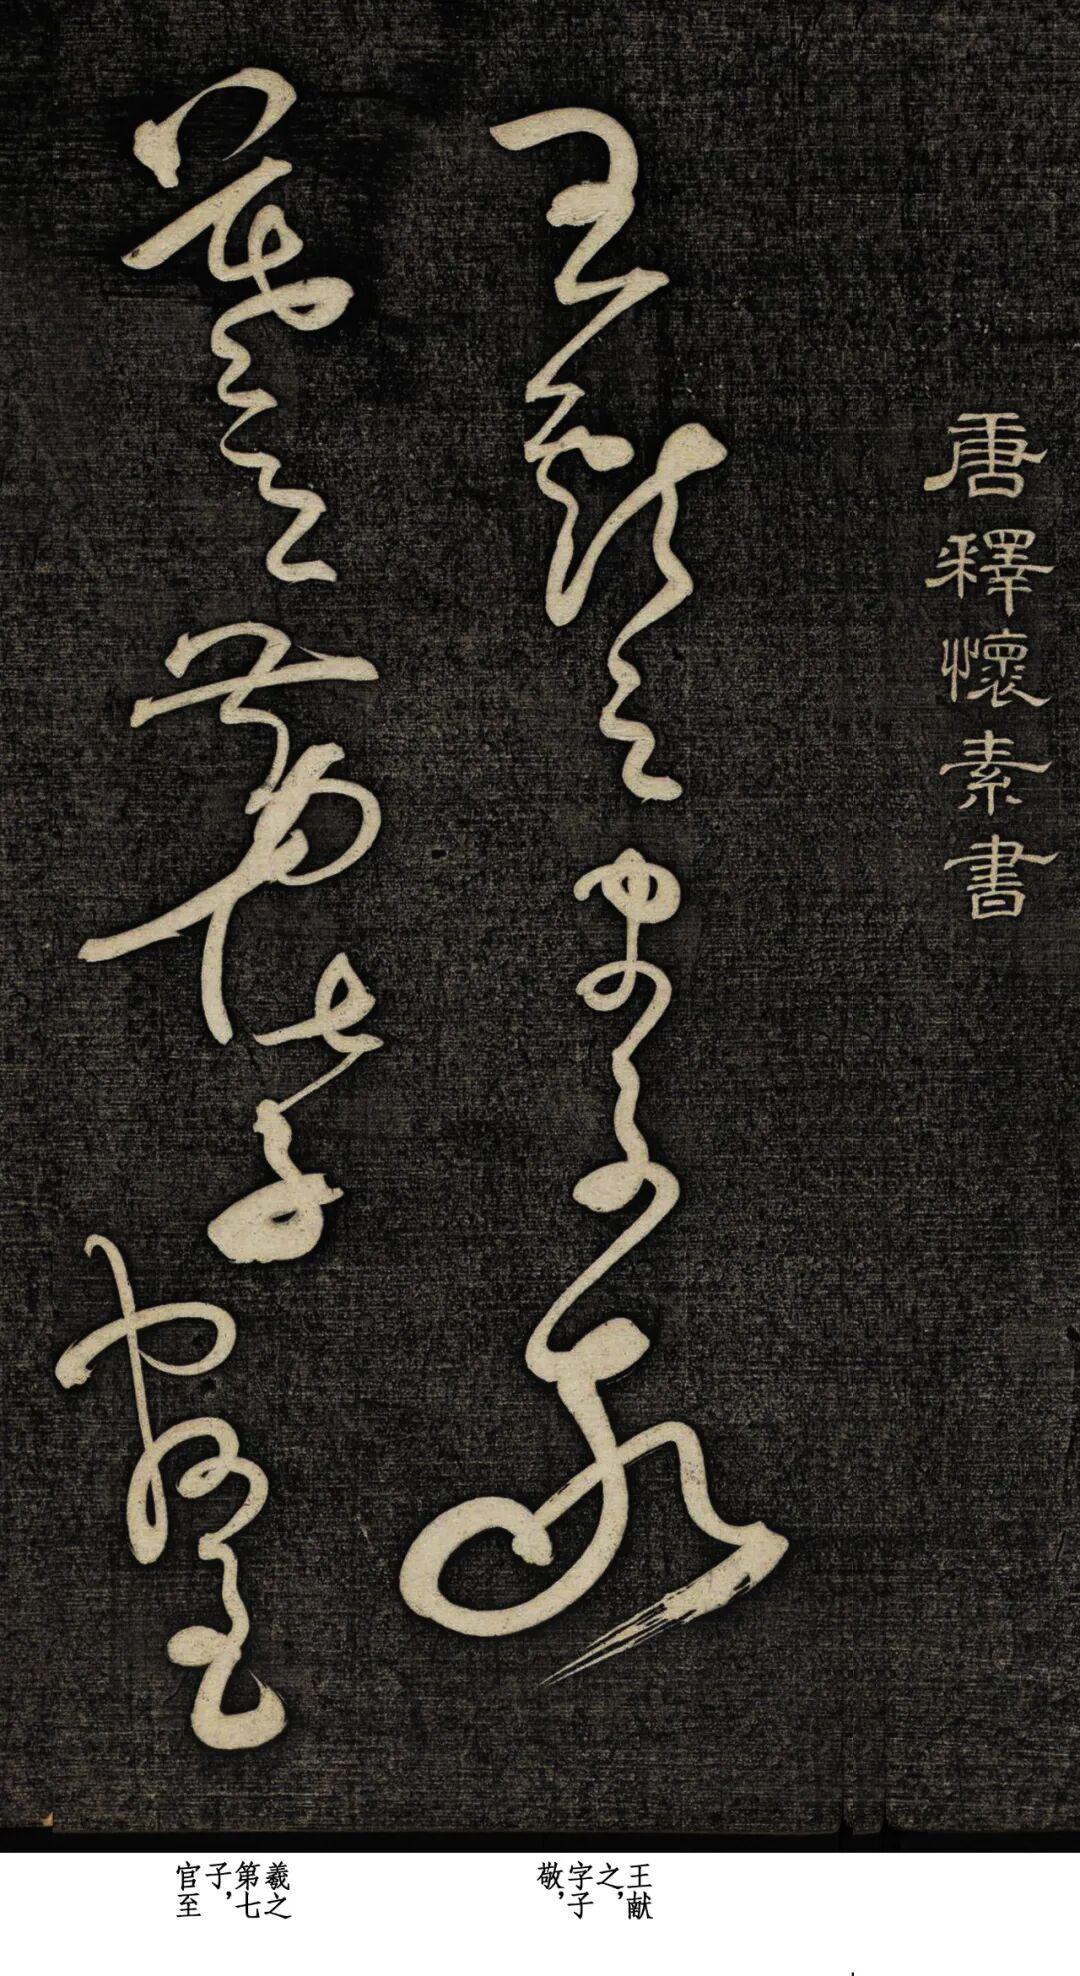 唐釋懷素書
王獻之字子敬
羲之第七子官至
王献
之，
字子
敬，
羲之
第七
子，
官至